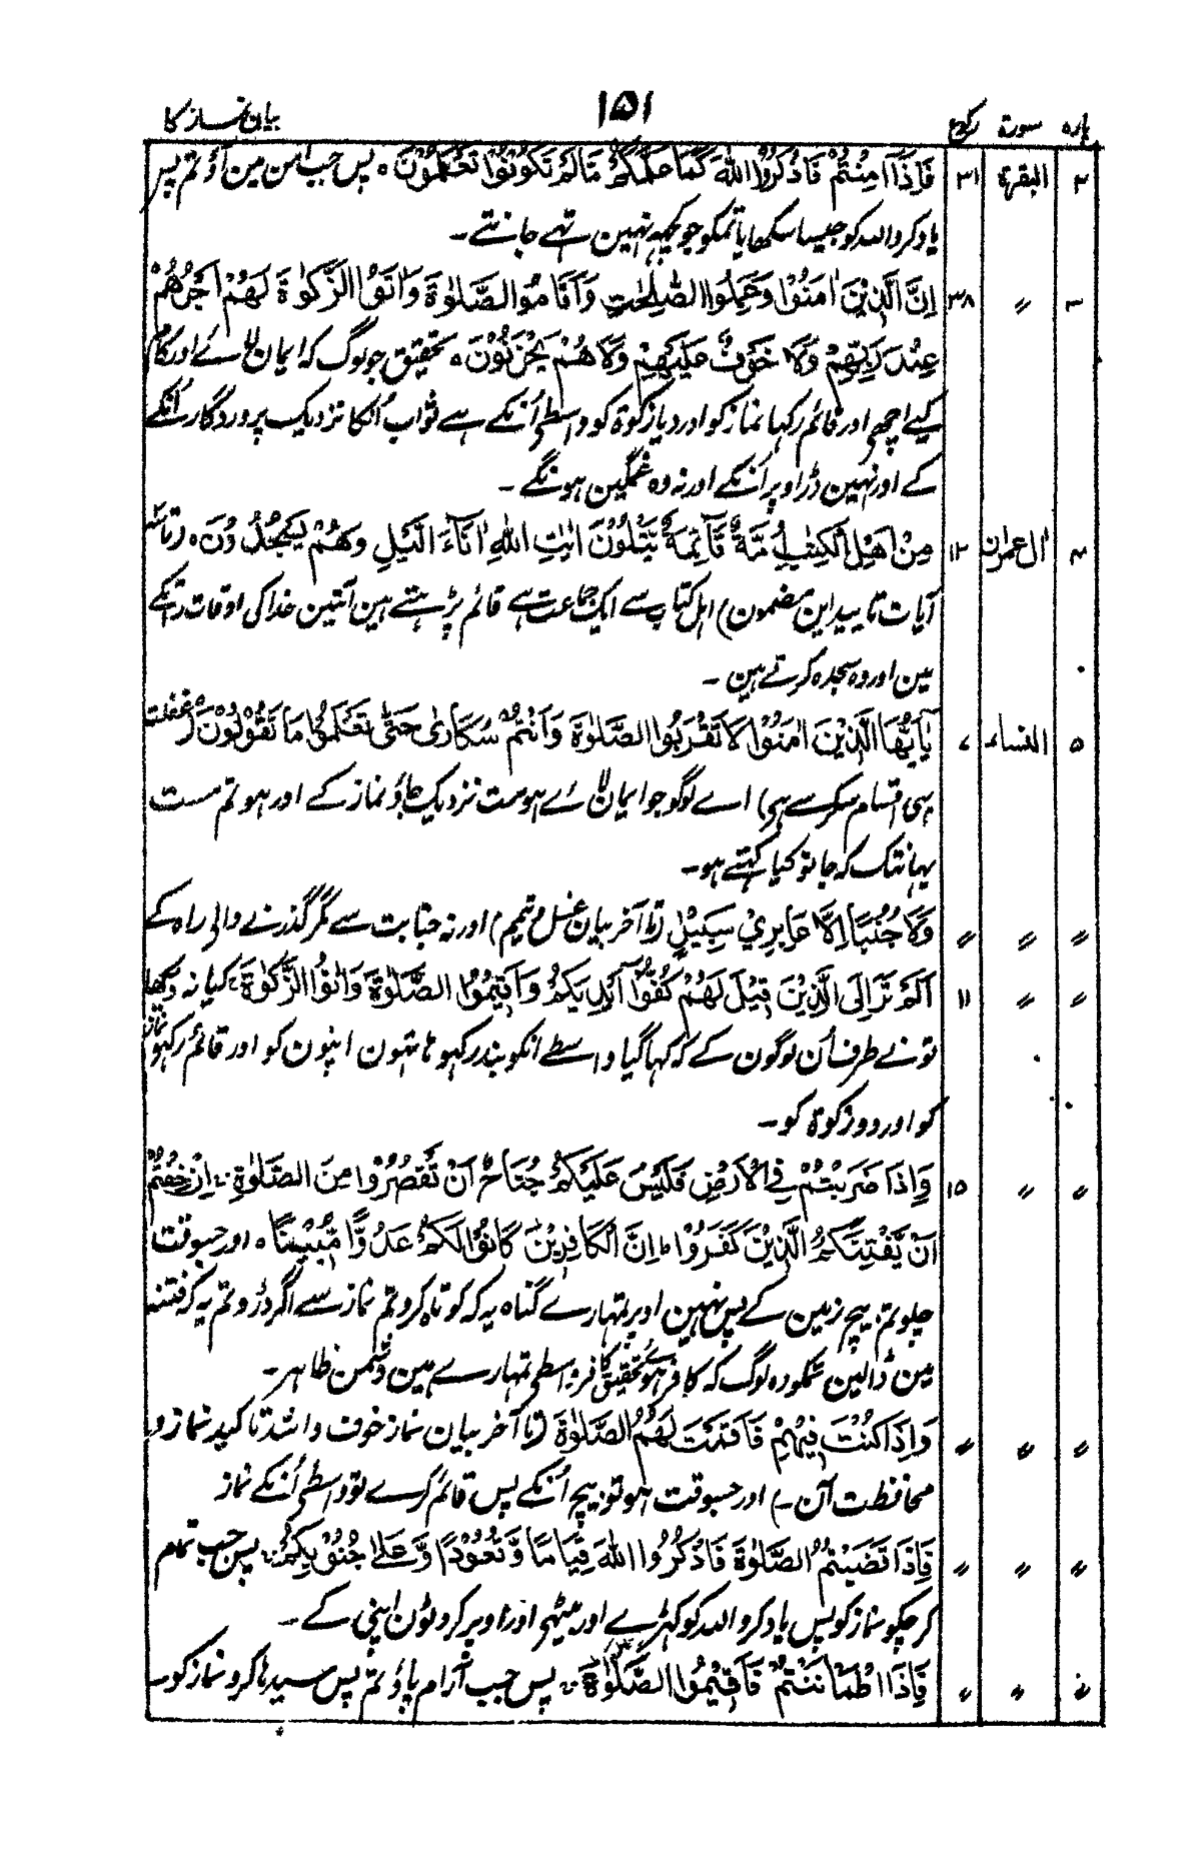 پارہ سورۃ رکوع ۱۵۱ بیان نماز کا
۲ البقرۃ ۳۱ فَاِذَآ اَمِنْتُمْ فَاذْكُرُوا اللّٰهَ كَمَا عَلَّمَكُمْ مَّا لَمْ تَكُوْنُوْا تَعْلَمُوْنَ ۰ پس جب امن مین آؤ تم پس
یاد کرو اللہ کو جیسا سکھایا تمکو جو کچھ نہین تھے جانتے ۔
۳ 〃 ۳۸ اِنَّ الَّذِيْنَ اٰمَنُوْا وَعَمِلُوا الصّٰلِحٰتِ وَاَقَامُوا الصَّلٰوةَ وَاٰتَوُا الزَّكٰوةَ لَهُمْ اَجْرُهُمْ
عِنْدَ رَبِّهِمْ وَلَا خَوْفٌ عَلَيْهِمْ وَلَا هُمْ يَحْزَنُوْنَ ۰ تحقیق جو لوگ کہ ایمان لائے اور کام
کیے اچھے اور قائم رکہا نماز کو اور دیا زکوۃ کو واسطے اُنکے ہے ثواب اُنکا نزدیک پروردگار اُنکے
کے اور نہین ڈر اوپر اُنکے اور نہ وہ غمگین ہونگے ۔
۴ اٰل عمران ۱۲ مِنْ اَهْلِ الْكِتٰبِ اُمَّةٌ قَآئِمَةٌ يَّتْلُوْنَ اٰيٰتِ اللّٰهِ اٰنَآءَ الَّيْلِ وَهُمْ يَسْجُدُوْنَ ۰ (تا سہ
آیات تایید این مضمون) اہل کتاب سے ایک جماعت ہے قائم پڑہتے ہین آیتین خدا کی اوقات رتکے
مین اور وہ سجدہ کرتے ہین ۔
۵ النساء ۷ يٰۤاَيُّهَا الَّذِيْنَ اٰمَنُوْا لَا تَقْرَبُوا الصَّلٰوةَ وَاَنْتُمْ سُكَارٰى حَتّٰى تَعْلَمُوْا مَا تَقُوْلُوْنَ (غفلت
بہی اقسام سکر سے ہی) اے لوگو جو ایمان لائے ہو مت نزدیک جاؤ نماز کے اور ہو تم مست
یہانتک کہ جانو کیا کہتے ہو ۔
〃 〃 〃 وَلَا جُنُبًا اِلَّا عَابِرِيْ سَبِيْلٍ (تا آخر بیان غسل و تیمم) اور نہ جنابت سے مگر گذرنے والی راہ کے
〃 〃 ۱۱ اَلَمْ تَرَ اِلَى الَّذِيْنَ قِيْلَ لَهُمْ كُفُّوْٓا اَيْدِيَكُمْ وَاَقِيْمُوا الصَّلٰوةَ وَاٰتُوا الزَّكٰوةَ ؞ کیا نہ دیکھا
تو نے طرف اُن لوگون کے کہ کہا گیا واسطے انکو بند رکہو ہاتہون اپنون کو اور قائم رکہو نماز
کو اور دو زکوۃ کو ۔
〃 〃 ۱۵ وَاِذَا ضَرَبْتُمْ فِى الْاَرْضِ فَلَيْسَ عَلَيْكُمْ جُنَاحٌ اَنْ تَقْصُرُوْا مِنَ الصَّلٰوةِ ؞ اِنْ خِفْتُمْ
اَنْ يَّفْتِنَكُمُ الَّذِيْنَ كَفَرُوْا ۰ اِنَّ الْكَافِرِيْنَ كَانُوْا لَكُمْ عَدُوًّا مُّبِيْنًا ۰ اور جسوقت
چلو تم بیچ زمین کے پس نہین اوپر تمہارے گناہ یہ کہ کوتاہ کرو تم نماز سے اگر ڈرو تم یہ کہ فتنہ
مین ڈالین تمکو وہ لوگ کہ کافر ہوئے تحقیق کافر واسطے تمہارے ہین دشمن ظاہر ۔
〃 〃 〃 وَاِذَا كُنْتَ فِيْهِمْ فَاَقَمْتَ لَهُمُ الصَّلٰوةَ (تا آخر بیان نماز خوف و اشد تاکید نماز و
محافظت آن ۔) اور جسوقت ہو تو بیچ اُنکے پس قائم کرے تو واسطے اُنکے نماز
〃 〃 〃 فَاِذَا قَضَيْتُمُ الصَّلٰوةَ فَاذْكُرُوا اللّٰهَ قِيَامًا وَّقُعُوْدًا وَّعَلٰى جُنُوْبِكُمْ ؞ پس جب تمام
کر چکو نماز کو پس یاد کرو اللہ کو کہڑے اور بیٹھے اور اوپر کروٹون اپنی کے ۔
〃 〃 〃 فَاِذَا اطْمَاْنَنْتُمْ فَاَقِيْمُوا الصَّلٰوةَ ؞ پس جب آرام پاؤ تم پس سیدہا کرو نماز کو ۔